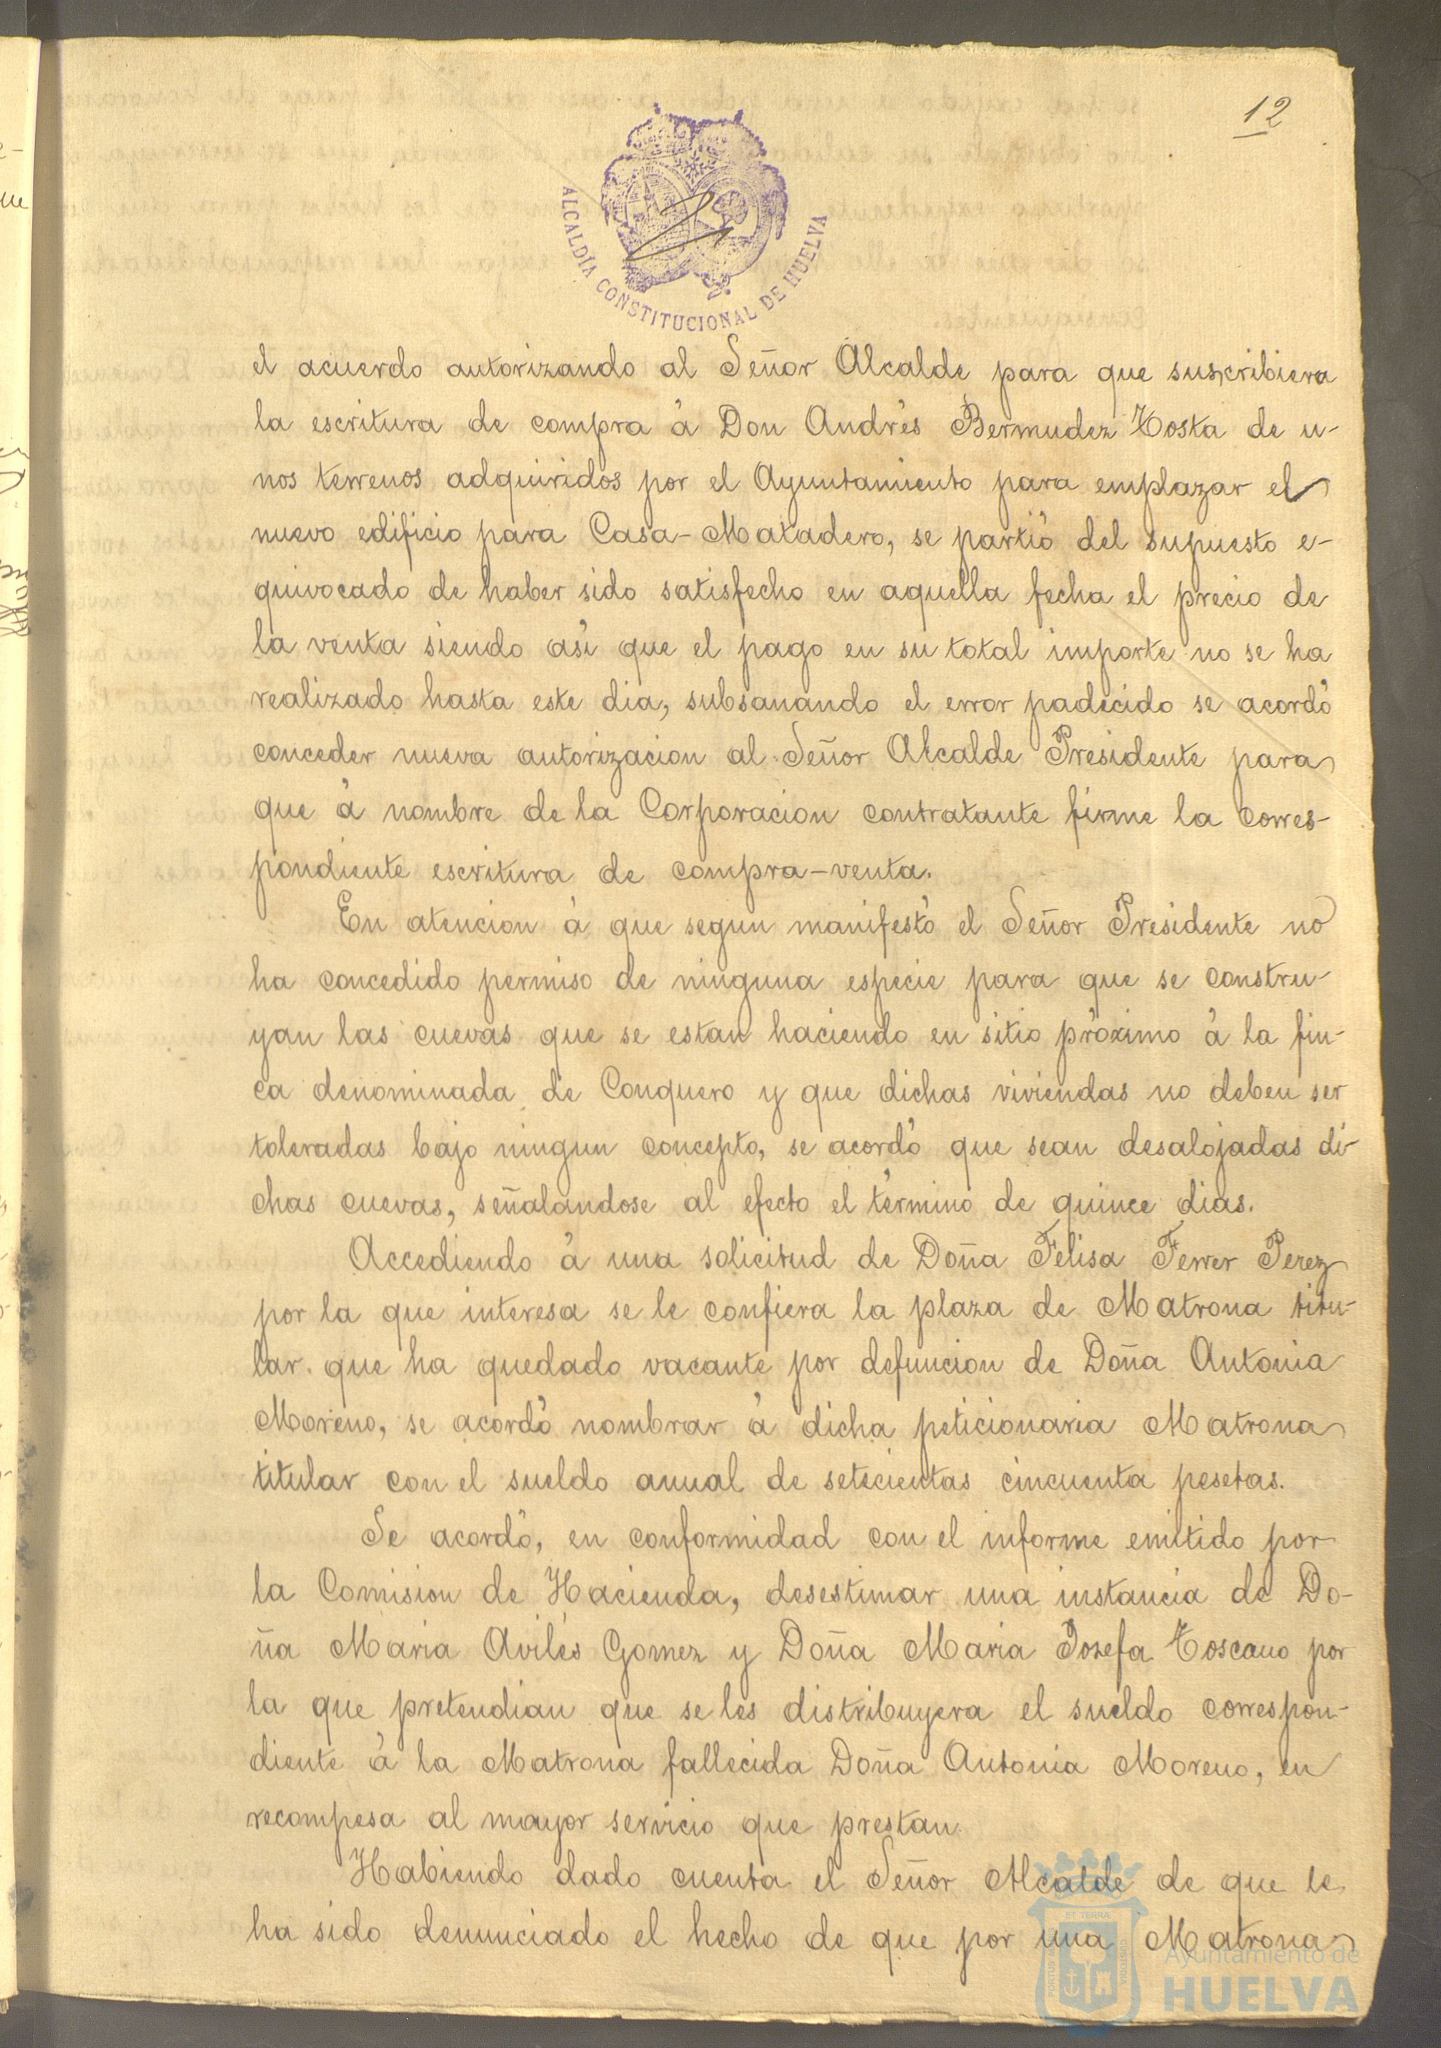 12
ALCALDÍA CONSTITUCIONAL DE HUELVA
el acuerdo autorizando al Señor Alcalde para que suscribiera
la escritura de compra á Don Andrés Bermudez Toska de u-
nos terrenos adquiridos por el Ayuntamiento para emplazar el
nuevo edificio para Casa-Matadero, se partió del supuesto e-
quivocado de haber sido satisfecho en aquella fecha el precio de
la venta siendo asi que el pago en su total importe no se ha
realizado hasta este dia, subsanando el error padecido se acordó
conceder nueva autorizacion al Señor Alcalde Presidente para
que á nombre de la Corporacion contratante firme la corres-
pondiente escritura de compra-venta.
En atencion á que segun manifestó el Señor Presidente no
ha concedido permiso de ninguna especie para que se constru-
yan las cuevas que se estan haciendo en sitio próximo á la fin-
ca denominada de Conquero y que dichas viviendas no deben ser
toleradas bajo ningun concepto, se acordó que sean desalojadas di-
chas cuevas, señalándose al efecto el término de quince dias.
Accediendo á una solicitud de Doña Felisa Ferrer Perez
por la que interesa se le confiera la plaza de Matrona titu-
lar que ha quedado vacante por defuncion de Doña Antonia
Moreno, se acordó nombrar á dicha peticionaria Matrona
titular con el sueldo anual de setecientas cincuenta pesetas.
Se acordó, en conformidad con el informe emitido por
la Comision de Hacienda, desestimar una instancia de Do-
ña Maria Avilés Gomez y Doña Maria Josefa Toscano por
la que pretendian que se les distribuyera el sueldo correspon-
diente á la Matrona fallecida Doña Antonia Moreno, en
recompesa al mayor servicio que prestan.
Habiendo dado cuenta el Señor Alcalde de que le
ha sido denunciado el hecho de que por una Matrona
Ayuntamiento de
HUELVA